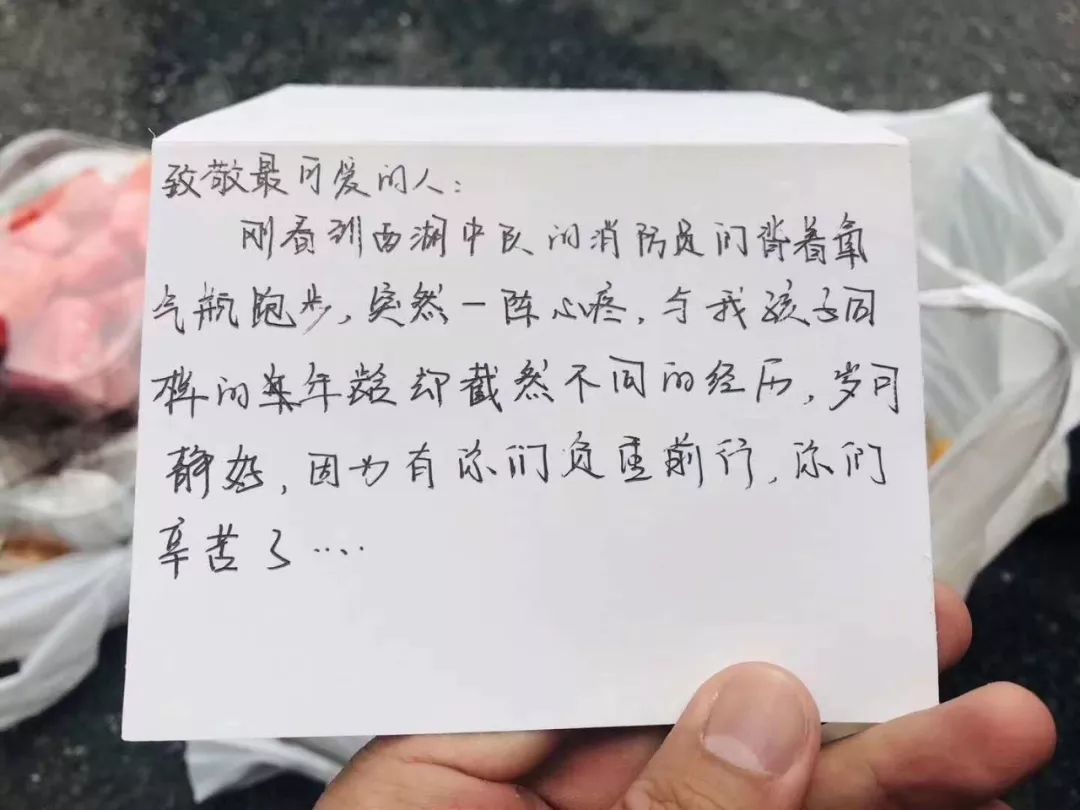 致敬最可爱的人：
刚看到西湖中队的消防员们背着氧
气瓶跑步，突然一阵心疼，与我孩子同
样的年龄却截然不同的经历，岁月
静好，因为有你们负重前行，你们
辛苦了·····